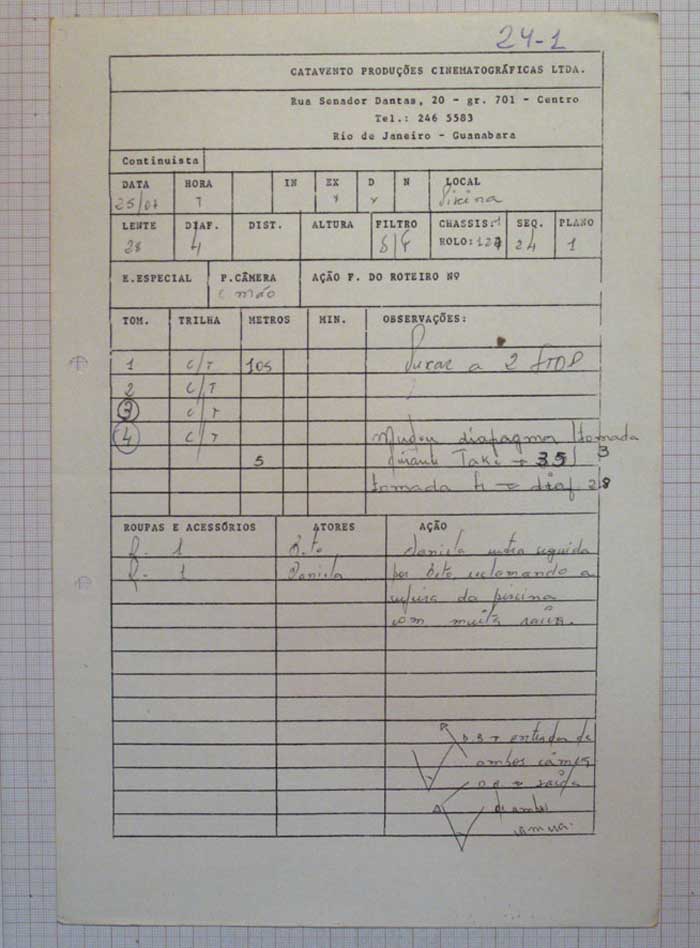 24-1
CATAVENTO PRODUÇÕES CINEMATOGRÁFICAS LTDA.
Rua Senador Dantas, 20 - gr. 701 - Centro
Tel.: 246 5583
Rio de Janeiro - Guanabara
Continuista
DATA HORA IN EX D N LOCAL
25/07 T x x Piscina
LENTE DIAF. DIST. ALTURA FILTRO CHASSIS:1 SEQ. PLANO
28 4 S/F ROLO:127 24 1
E.ESPECIAL P.CÂMERA AÇÃO F. DO ROTEIRO Nº
mão
TOM. TRILHA METROS MIN. OBSERVAÇÕES:
1 C/T 105 Puxar a 2 STOP
2 C/T
3 C/T
4 C/T Mudou diafragma tomada
5 durante Take 3
tomada 4 diaf 2 8
ROUPAS E ACESSÓRIOS ATORES AÇÃO
R. 1 Beto Daniela entra seguida
R. 1 Daniela por Beto reclamando a
da piscina
com muita raiva.
entrada de
ambos câmera
saída
de ambos
câmera.